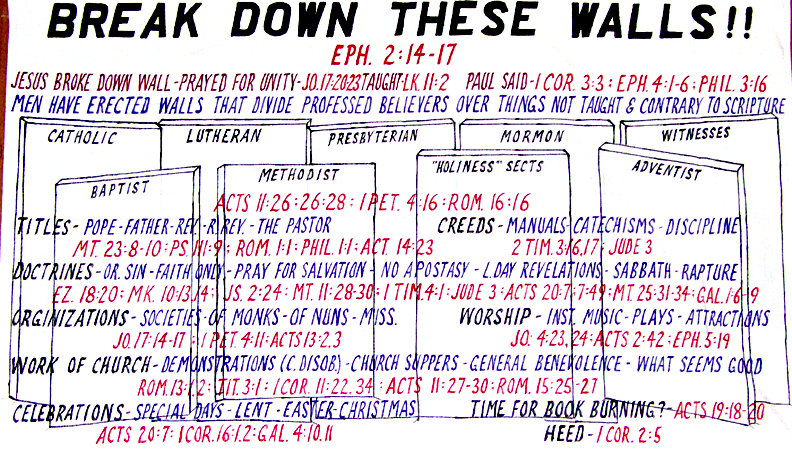 BREAK DOWN THESE WALLS!!
EPH. 2:14-17
JESUS BROKE DOWN WALL-PRAYED FOR UNITY-JO.17-20.23 TAUGHT-LK.11:2 PAUL SAID-1 COR. 3:3: EPH. 4:1-6: PHIL. 3:16
MEN HAVE ERECTED WALLS THAT DIVIDE PROFESSED BELIEVERS OVER THINGS NOT TAUGHT & CONTRARY TO SCRIPTURE
CATHOLIC LUTHERAN PRESBYTERIAN MORMON WITNESSES
BAPTIST METHODIST "HOLINESS" SECTS ADVENTIST
ACTS 11:26: 26-28: 1 PET. 4:16: ROM. 16:16
TITLES- POPE-FATHER-REV.-R.REV.-THE PASTOR CREEDS-MANUALS-CATECHISMS-DISCIPLINE
MT. 23:8-10: PS. 111:9: ROM. 1:1: PHIL. 1:1: ACT. 14:23 2 TIM. 3:16,17: JUDE 3
DOCTRINES-OR. SIN-FAITH ONLY-PRAY FOR SALVATION-NO APOSTASY-L.DAY REVELATIONS-SABBATH-RAPTURE
EZ. 18:20: MK. 10:13,14: JS. 2:24: MT. 11:28-30: 1 TIM. 4:1: JUDE 3: ACTS 20:7: 7:49: MT. 25:31-34: GAL. 1:6-19
ORGINIZATIONS-SOCIETIES-OF MONKS-OF NUNS-MISS. WORSHIP-INST. MUSIC-PLAYS-ATTRACTIONS
JO. 17:14-17: 1 PET. 4:11: ACTS 13:2.3 JO. 4:23,24: ACTS 2:42: EPH. 5:19
WORK OF CHURCH-DEMONSTRATIONS (C. DISOB.)-CHURCH SUPPERS-GENERAL BENEVOLENCE-WHAT SEEMS GOOD
ROM. 13:1.2: TIT. 3:1: 1 COR. 11:22.34: ACTS 11:27-30: ROM. 15:25-27
CELEBRATIONS-SPECIAL DAYS-LENT-EASTER-CHRISTMAS TIME FOR BOOK BURNING?-ACTS 19:18-20
ACTS 20:7: 1 COR. 16:1.2: GAL. 4:10.11 HEED-1 COR. 2:5